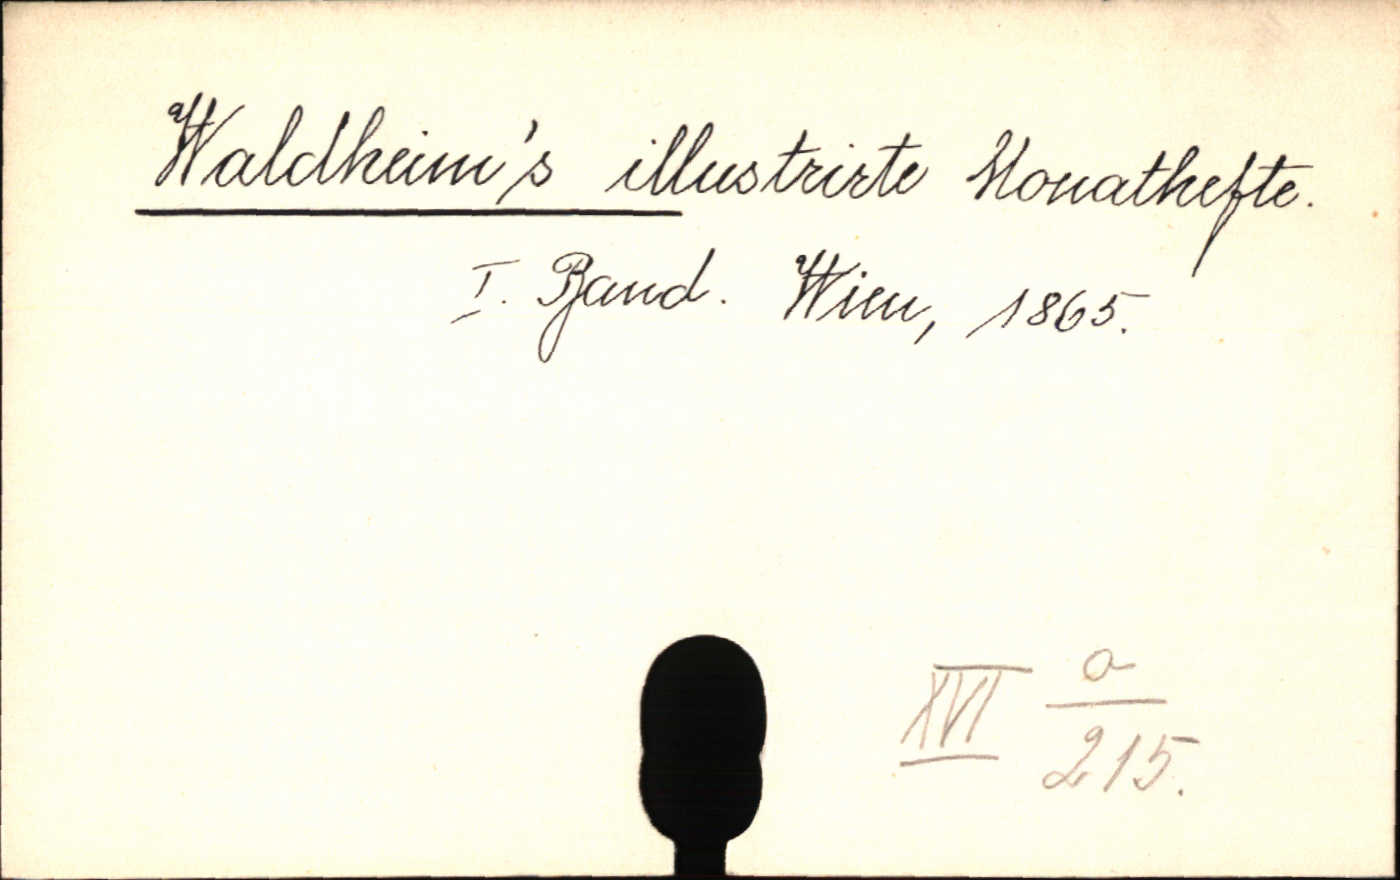 Waldheim's illustrirte Monathefte.
I. Band. Wien, 1865.
XVI a
215.